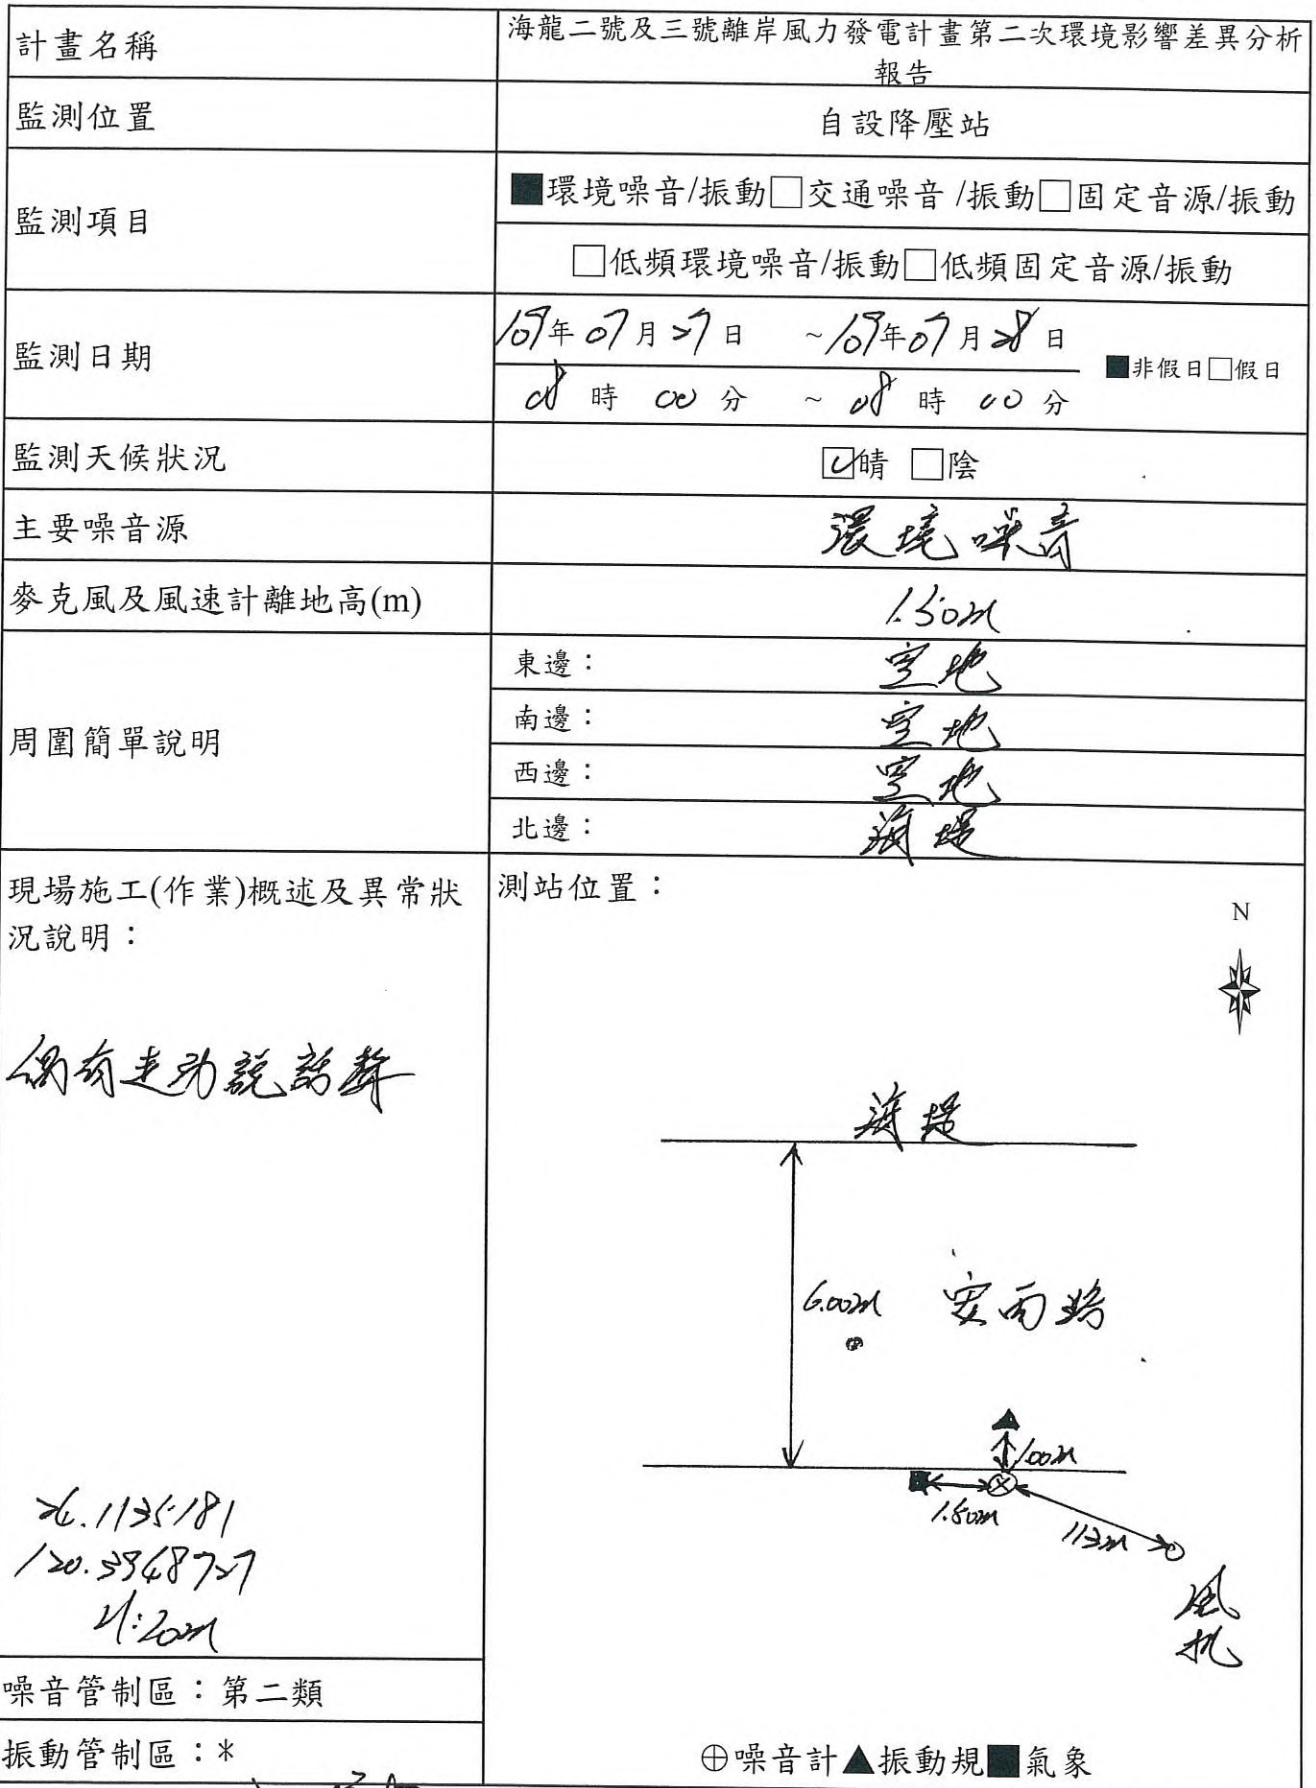 計畫名稱
海龍二號及三號離岸風力發電計畫第二次環境影響差異分析
報告
監測位置
自設降壓站
監測項目
■環境噪音/振動□交通噪音 /振動□固定音源/振動
□低頻環境噪音/振動□低頻固定音源/振動
監測日期
109年07月27日 ~109年07月28日
08時00分 ~08時00分
■非假日□假日
監測天候狀況
☑晴 □陰
主要噪音源
環境噪音
麥克風及風速計離地高(m)
1.50m
周圍簡單說明
東邊： 空地
南邊： 空地
西邊： 空地
北邊： 海堤
現場施工(作業)概述及異常狀
況說明：
偶有走動說話聲
120.3948727
噪音管制區：第二類
振動管制區：*
測站位置：
N
海堤
6.00m
安西路
1.00m
1.50m
113m
風
机
⊕噪音計▲振動規■氣象